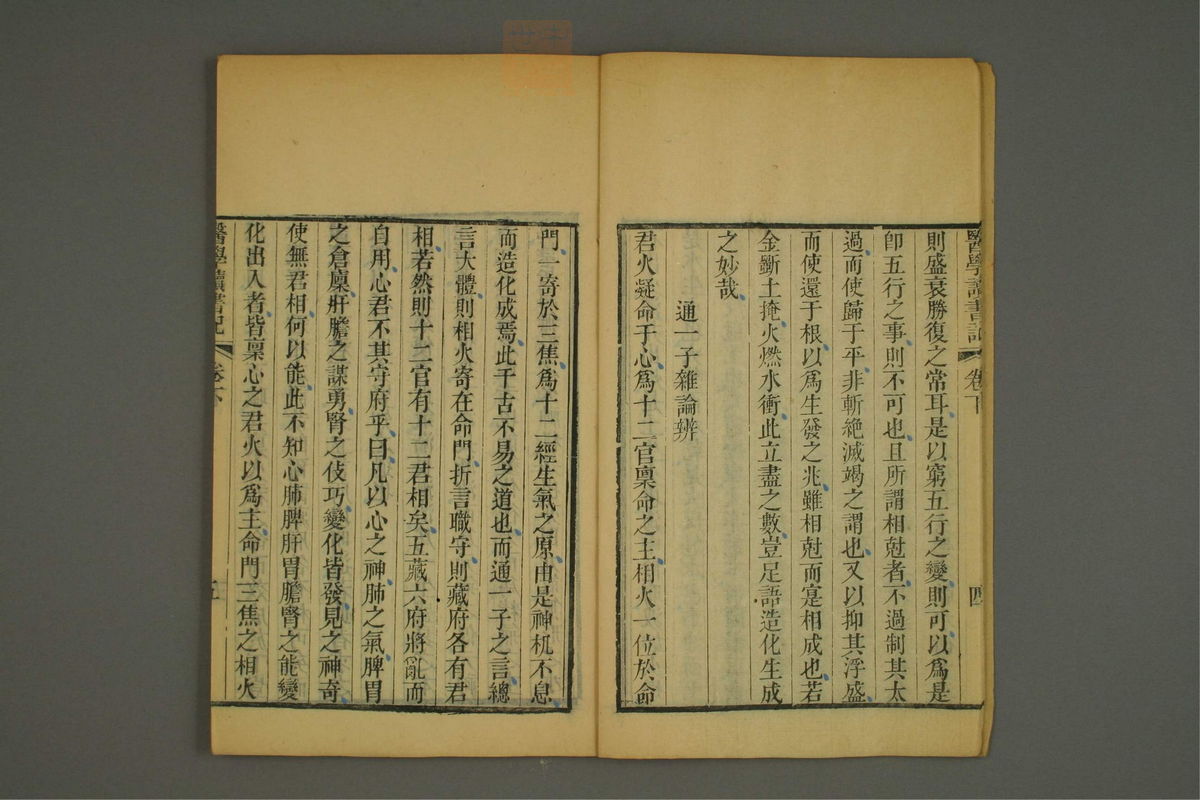 醫學讀書記 卷下 四
則盛衰勝復之常耳是以窮五行之變則可以爲是
卽五行之事則不可也且所謂相尅者不過制其太
過而使歸于平非斬絶滅竭之謂也又以抑其浮盛
而使還于根以爲生發之兆雖相尅而寔相成也若
金斷土掩火燃水衝此立盡之數豈足語造化生成
之妙哉
通一子雜論辨
君火凝命于心爲十二官禀命之主相火一位於命
門一寄於三焦爲十二經生氣之原由是神机不息
而造化成焉此千古不易之道也而通一子之言總
言大體則相火寄在命門折言職守則藏府各有君
相若然則十二官有十二君相矣五藏六府將亂而
自用心君不其守府乎曰凡以心之神肺之氣脾胃
之倉廩肝膽之謀勇腎之伎巧變化皆發見之神奇
使無君相何以能此不知心肺脾肝胃膽腎之能變
化出入者皆禀心之君火以爲主命門三焦之相火
醫學讀書記 卷下 五